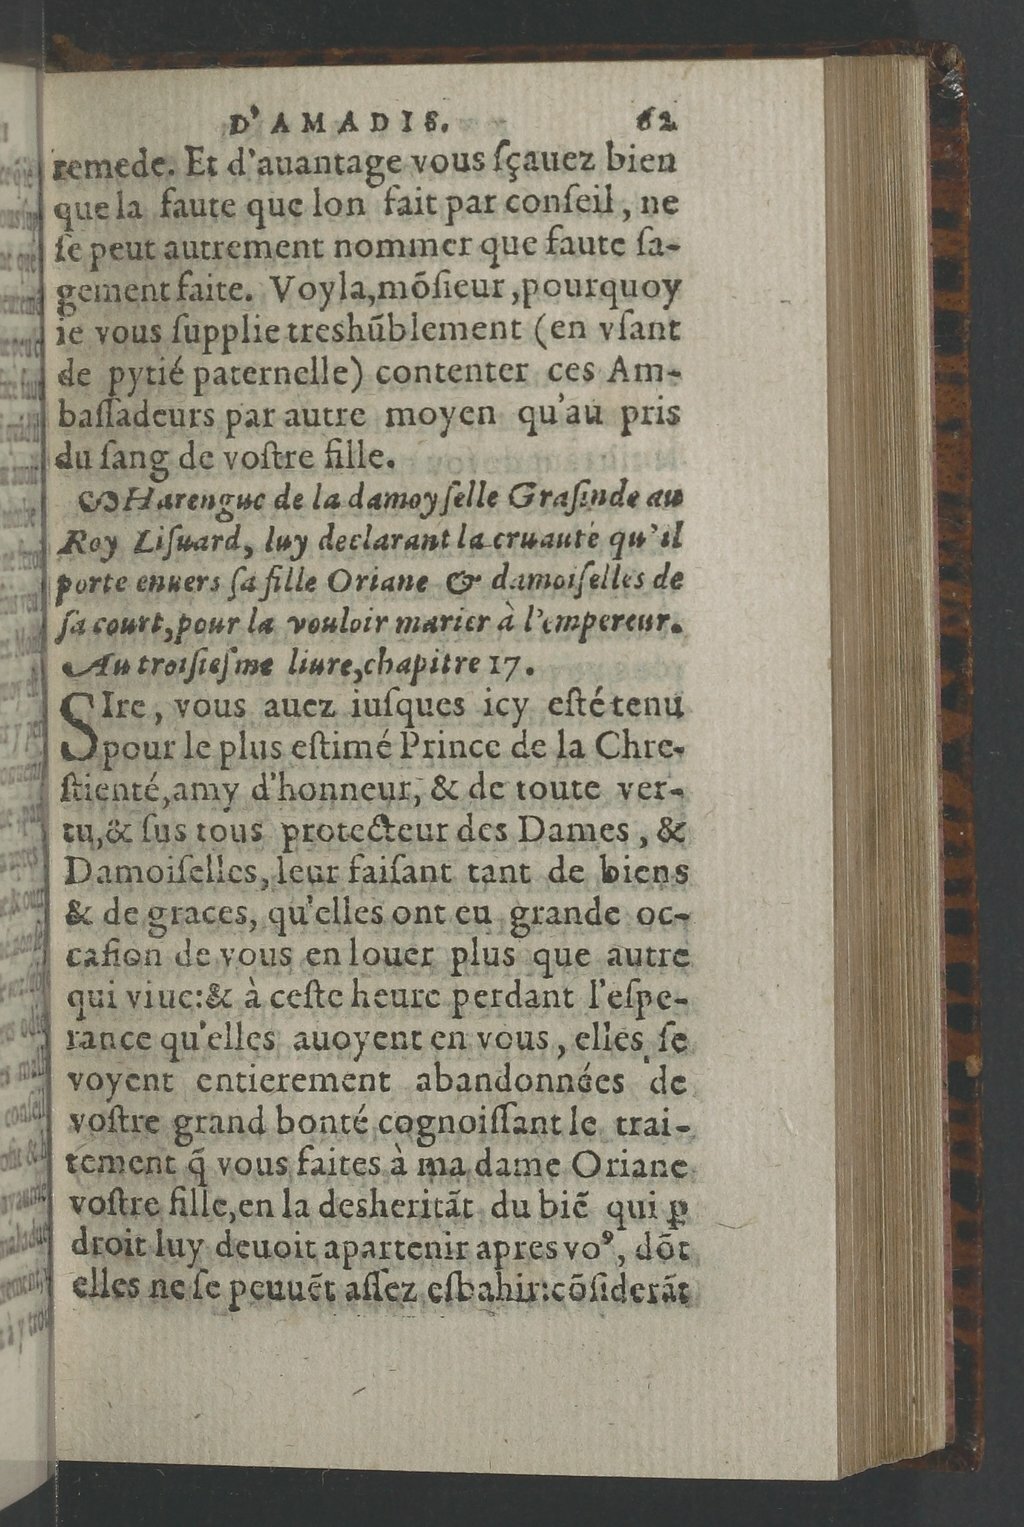 D'AMADIS. 62
remede. Et d'auantage vous ſçauez bien
que la faute que lon fait par conſeil, ne
ſe peut autrement nommer que faute ſa-
gement faite. Voyla, mõſieur, pourquoy
ie vous ſupplie treshũblement (en vſant
de pytié paternelle) contenter ces Am-
baſſadeurs par autre moyen qu'au pris
du ſang de voſtre fille.
Harengue de la damoyſelle Graſinde au
Roy Liſuard, luy declarant la cruauté qu'il
porte enuers ſa fille Oriane & damoiſelles de
ſa court, pour la vouloir marier à l'empereur.
Au troiſieſme liure, chapitre 17.
SIre, vous auez iuſques icy eſté tenu
pour le plus eſtimé Prince de la Chre-
ſtienté, amy d'honneur, & de toute ver-
tu, & ſus tous protecteur des Dames, &
Damoiſelles, leur faiſant tant de biens
& de graces, qu'elles ont eu grande oc-
caſion de vous en louer plus que autre
qui viue: & à ceſte heure perdant l'eſpe-
rance qu'elles auoyent en vous, elles ſe
voyent entierement abandonnées de
voſtre grand bonté cognoiſſant le trai-
tement q̃ vous faites à ma dame Oriane
voſtre fille, en la desheritãt du biẽ qui ꝑ
droit luy deuoit apartenir apres voꝰ, dõt
elles ne ſe peuuẽt aſſez eſbahir: cõſiderãt